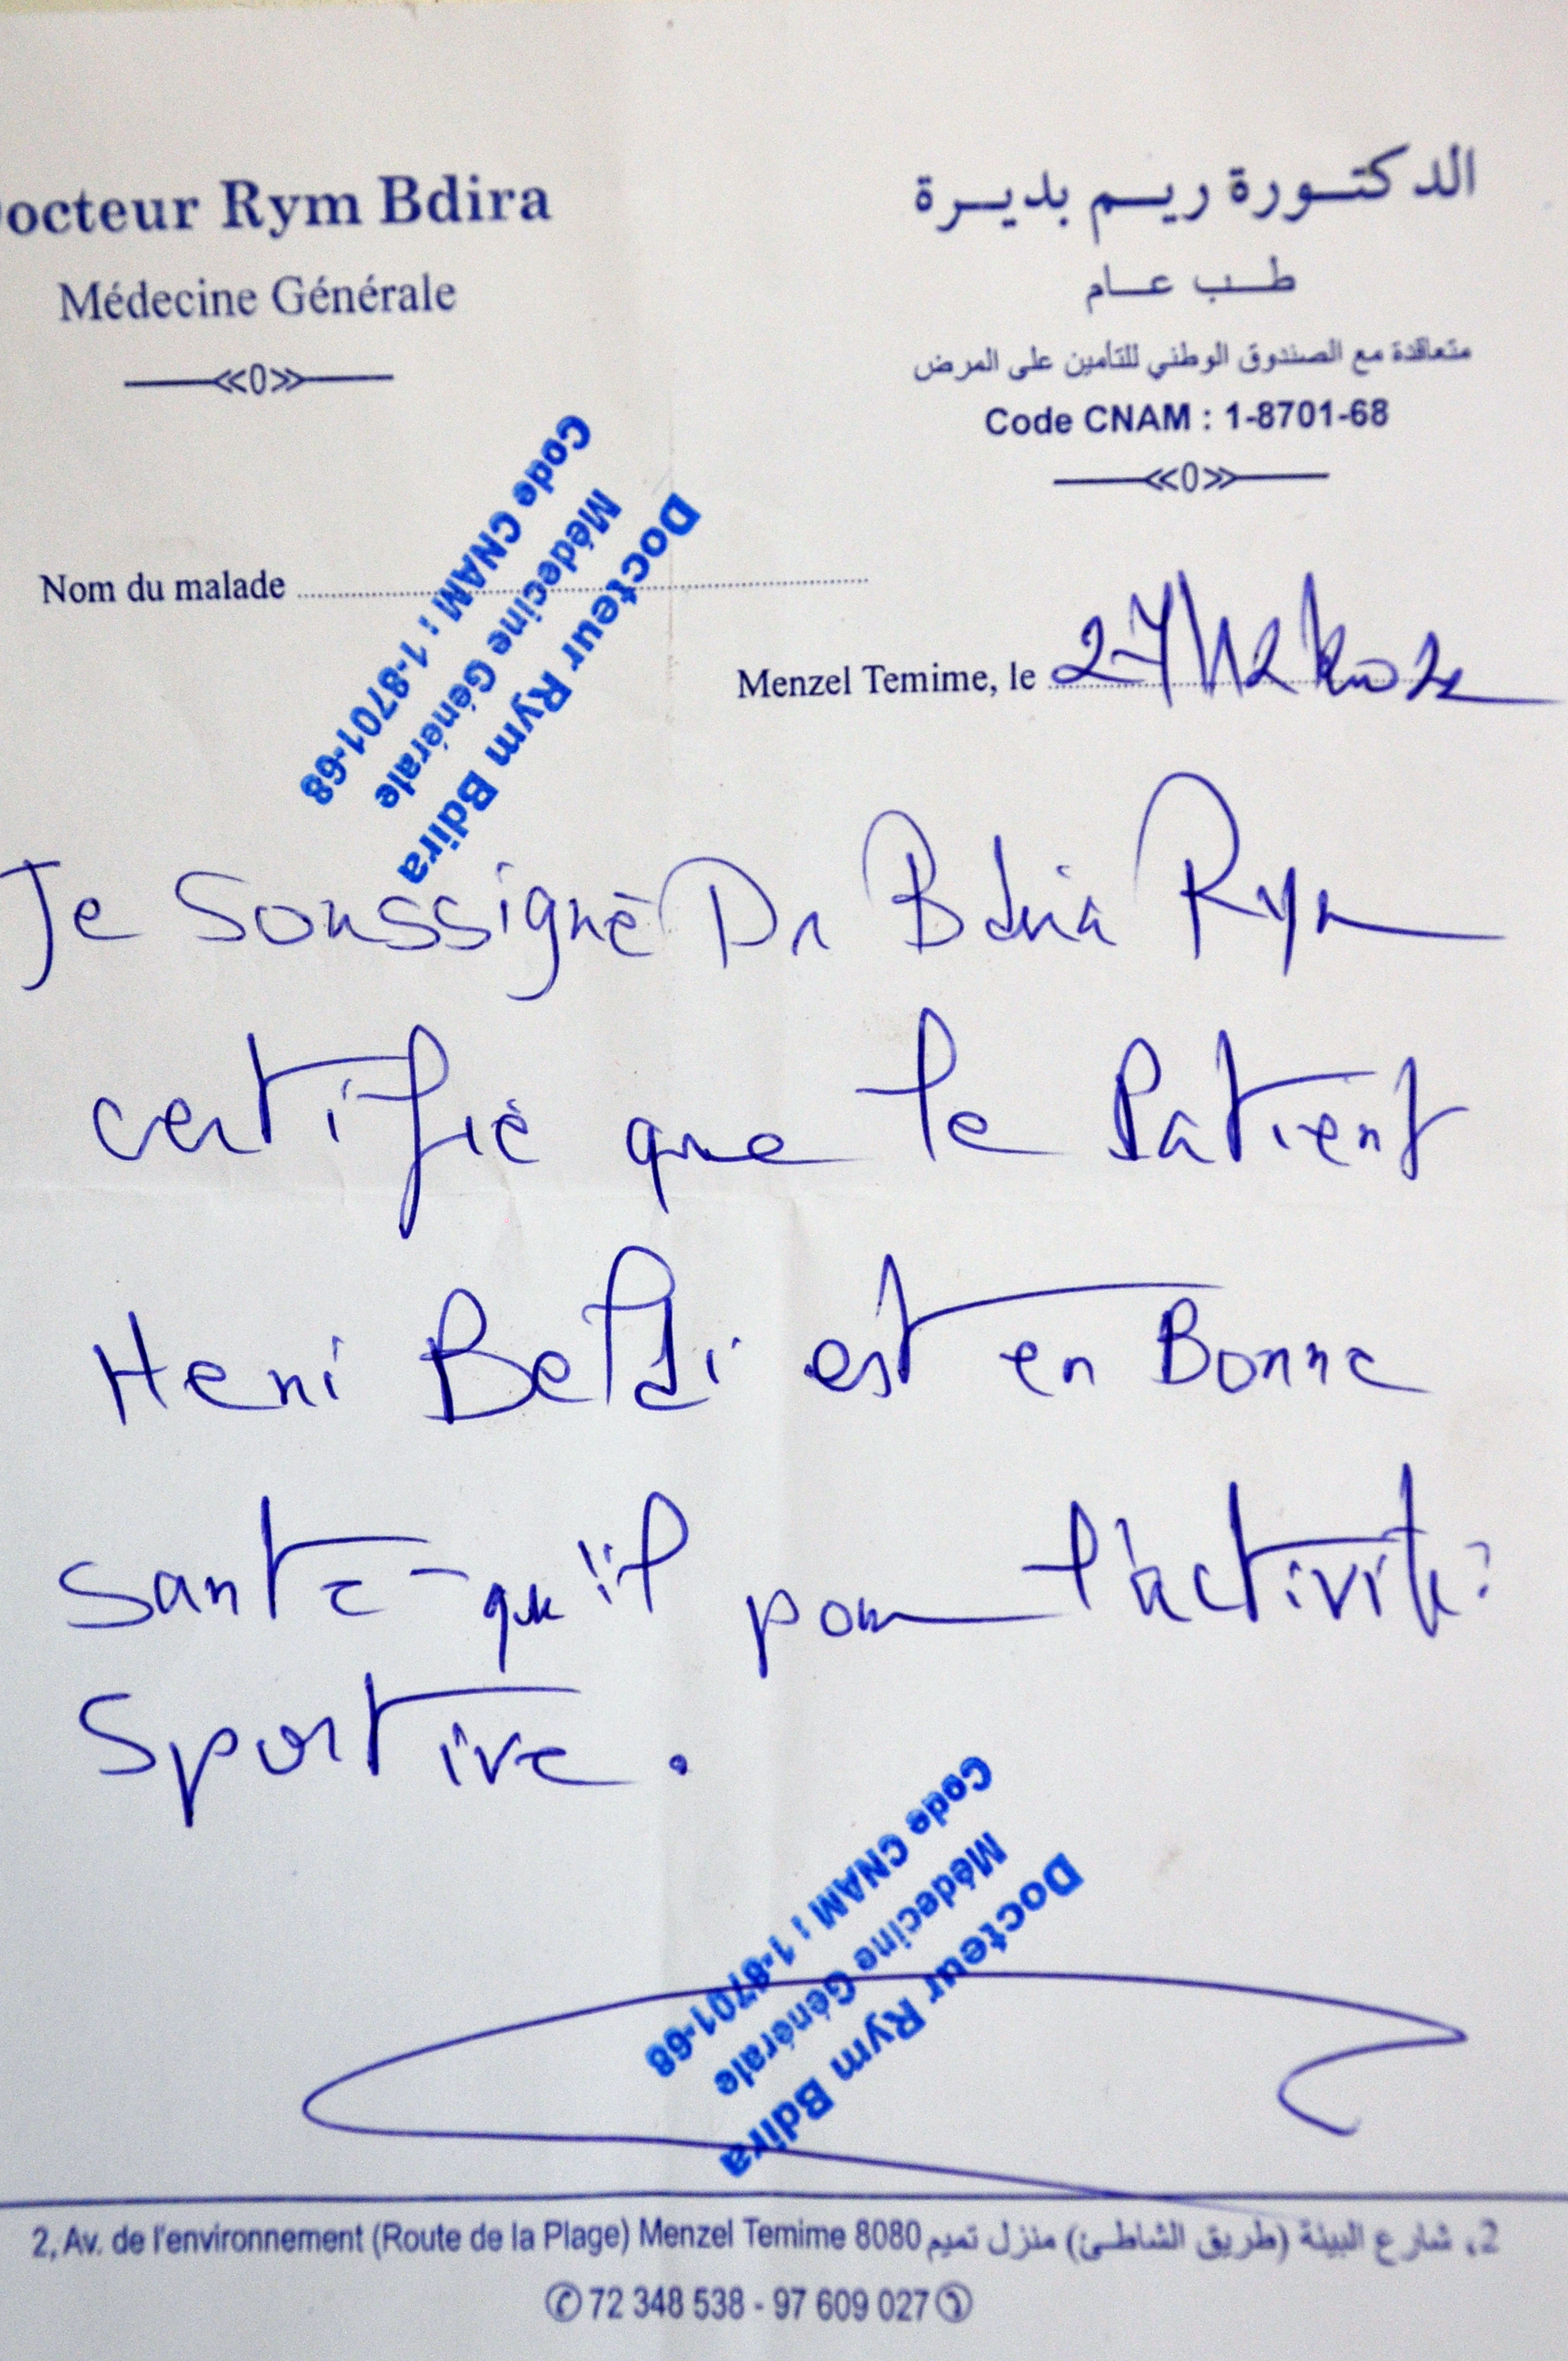 Docteur Rym Bdira
Médecine Générale
«0»
الدكتورة ريم بديرة
طب عام
متعاقدة مع الصندوق الوطني للتأمين على المرض
Code CNAM : 1-8701-68
«0»
Docteur Rym Bdira
Médecine Générale
Code CNAM : 1-8701-68
Nom du malade
Menzel Temime, le 27/12/
Je Soussigné Dr Bdira Rym
certifié que le Patient
Heni Beldi est en Bonne
Santé qu'il pour l'activité
Sportive.
Docteur Rym Bdira
Médecine Générale
Code CNAM : 1-8701-68
2, Av. de l'environnement (Route de la Plage) Menzel Temime 8080 2، شارع البيئة (طريق الشاطئ) منزل تميم
✆ 72 348 538 - 97 609 027 ✆